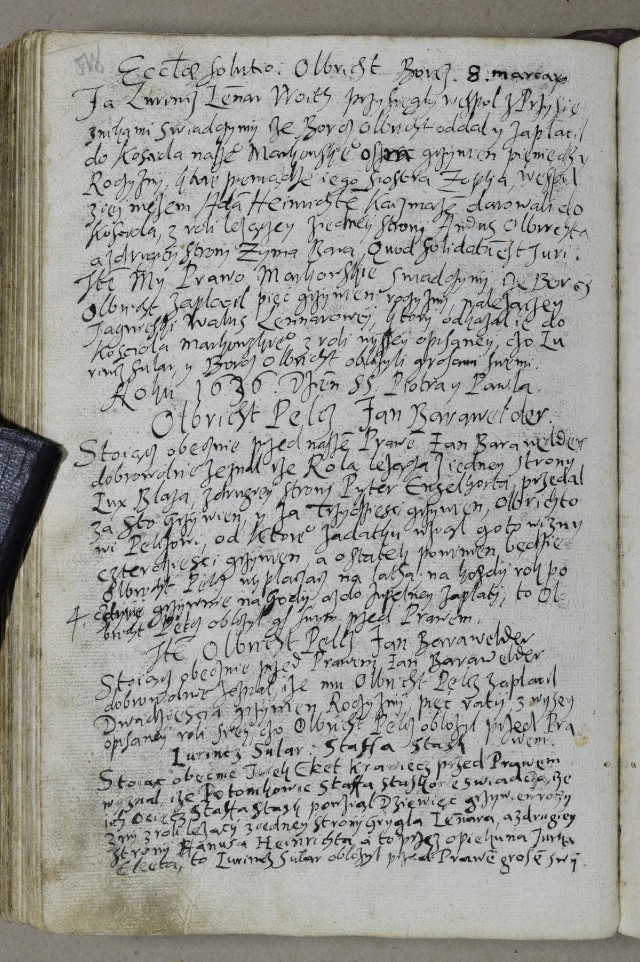 Ecctæ solutio: Olbricht Borcz. 8. marcas
Ja Lurincz Lenar Woith przysięgły wespol z Przysię
znikami swiadczymy ze Borcz Olbricht oddal y zaplacil
do kosciola naszego Markowskiego grzywien pieniędzy
Roczyny, ktore pieniądze iego siostra Zophia, wespol
z iej męzem Adā Heinrichte Kaczmarze darowali do
Kosciola, z roli lezączey z iedney strony Andris Olbrichta
a z drugiey strony Zyma Bara, Quod solidatū est Juri.
Itē My Prawo Markowskie swiadczymy, ze Borcz
Olbricht zaplacil pięc grzywien roczyny, nalezaczey
Jagnieszki Walus Lennarowey, ktory odkazal ie do
Kosciola markowskiego z roli wyszey opisaney, czo Lu
rincz Sular, y Borcz Olbricht oblozyli groszmi swemi.
Roku 1636. Dzien SS. Piotra y Pawla.
Olbricht Pelcz Jan Barawelder.
Stoiącz obecznie przed naszē Prawē Jan Barawelder
dobrowolnie zeznal ize Rola lezącza z iedney strony
Lux Blaza, z drugiey strony Pyter Enzelhorta, przedal
za Sto grzywien, y za Trzydziesci grzywien, Olbrichto
wi Pelczowi, od ktorego zadatku wzial gotowizny
czterdziesci grzywien, a ostatek powinien będzie
Olbricht Pelcz wyplaczacz na kazdy rok po
4. grzywnie na Gody, az do zupelney zaplaty, to Ol-
bricht Pelcz oblozyl przed Prawem.
Itē Olbricht Pelcz Jan Barawelder
Stoiącz obecznie przed Prawem Jan Barawelder
dobrowolnie zeznal, ize mu Olbricht Pelcz zaplacil
Dwadziescia grzywien Roczyny pięc ratij, z wyszey
opisaney roli swey, czo Olbricht Pelcz oblozyl przed Pra
wem.
Lurincz Sular: Staffa Stask
Stoiącz obecznie Jurek Eket Krawiecz przed Prawem
wyznal, ize Potomkowie Staffa Staskowe swiadczą, ze
ich Ociecz Staffa Stask powziąl Dziewięc grzywien roczy
zny z roli lezączy z iedney strony Grygla Lenara, a z drugiey
strony Hanusa Heinrichta, a to przez opiekuna Jurka
Eketa, to Lurincz Sular oblozyl przed Prawē groszē swy.